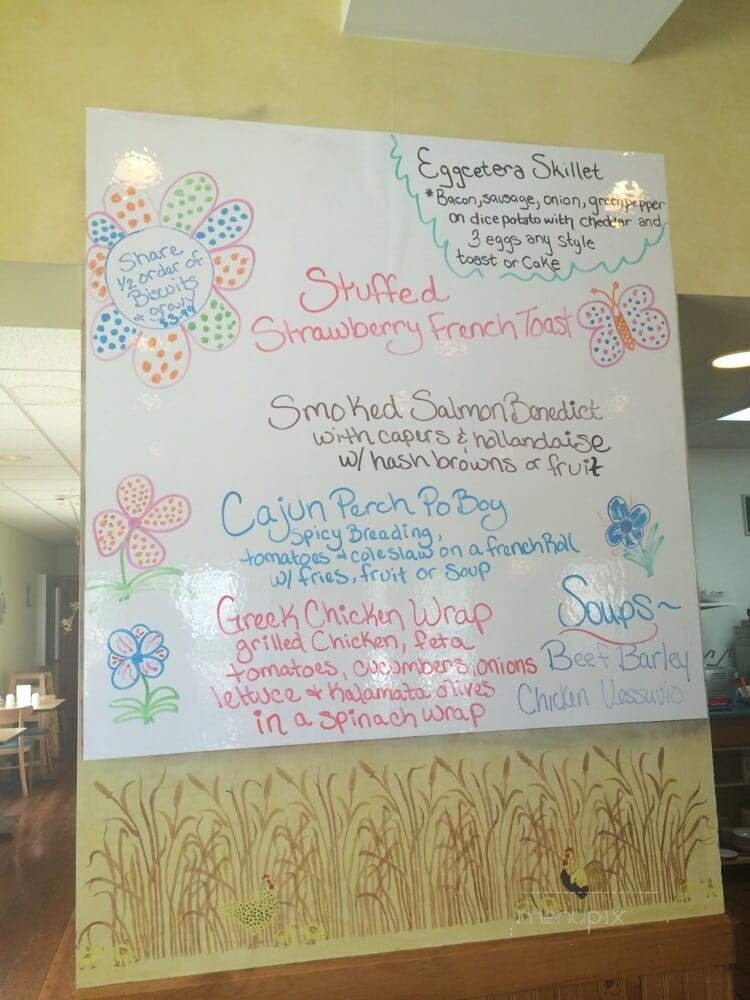 Eggcetera Skillet
*Bacon, sausage, onion, green pepper
on dice potato with cheddar and
3 eggs any style
toast or Cake
Share
1/2 order of
Biscuits
+ gravy
$3.99
Stuffed
Strawberry French Toast
Smoked Salmon Benedict
with capers & hollandaise
w/ hash browns or fruit
Cajun Perch Po Boy
Spicy Breading,
tomatoes + coleslaw on a french Roll
w/ fries, fruit or Soup
Greek Chicken Wrap
grilled Chicken, feta
tomatoes, cucumbers, onions
lettuce & Kalamata olives
in a spinach wrap
Soups~
Beef Barley
Chicken Vessuvio
menupix